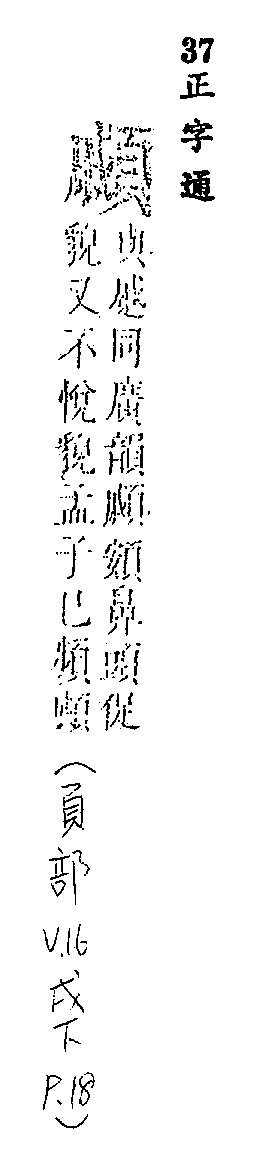 37正字通
顣
與蹙同廣韻顣頞鼻頭促
貌又不悅貌孟子己頻顣
(員部 V.16 戌下 P.18)